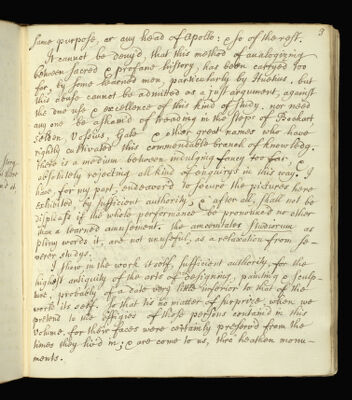 3
same purpose, as any head of Apollo: & so of the rest.
It cannot be deny'd, that this method of analogizing
between sacred & profane history, has been carryed too
far, by some learned men, particularly by Huetius. but
this abuse cannot be admitted as a just argument, against
the due use & excellence of this kind of study. nor need
any one be asham'd of treading in the steps of Bochart
Selden, Vossius, Gale & other great names who have
rightly cultivated this commendable branch of knowledg.
there is a medium between indulging fancy too far, &
absolutely rejecting all kind of enquirys in this way. I
have, for my part, endeavor'd to secure the pictures here
exhibited, by sufficient authority; & after all, shall not be
displeas'd if the whole performance be pronounc'd no other
than a learned amusement. the amœnitates studiorum as
pliny words it, are not unuseful, as a relaxation from se-
verer studys.
I shew in the work itself, sufficient authority for the
highest antiquity of the arts of designing, painting & sculp-
ture, probably of a date very little inferior to that of the
world its self. so that tis no matter of surprize when we
pretend to the effigies of those persons contain'd in this
volume. for their faces were certainly preserv'd from the
times they liv'd in; & are come to us, thro heathen monu-
ments.